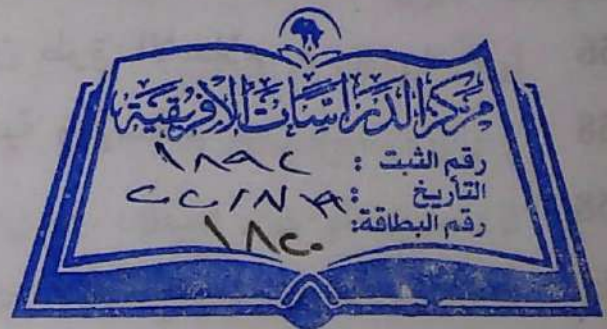 مركز الدراسات الأفريقية
رقم الثبت : ١٨٩٢
التأريخ :
رقم البطاقة: ١٨٢٠